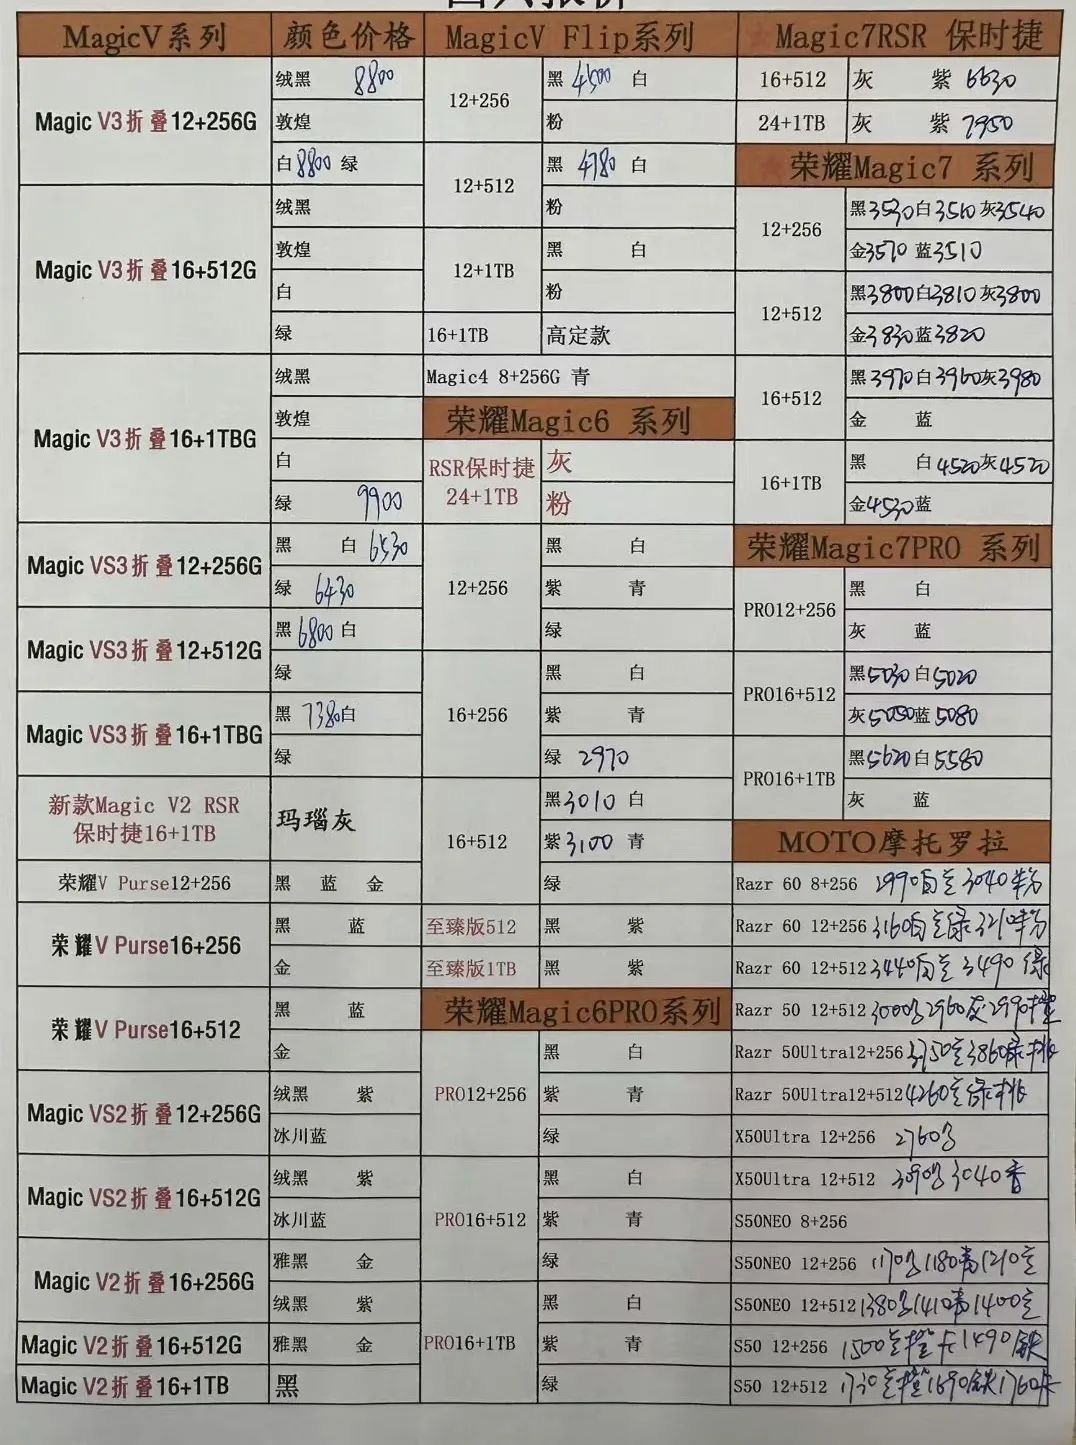 MagicV系列 颜色价格
Magic V3折叠12+256G
绒黑 8800
敦煌
白8800 绿
Magic V3折叠16+512G
绒黑
敦煌
白
绿
Magic V3折叠16+1TBG
绒黑
敦煌
白
绿 9900
Magic VS3折叠12+256G
黑 白 6530
绿 6430
Magic VS3折叠12+512G
黑 6800 白
绿
Magic VS3折叠16+1TBG
黑 7380白
绿
新款Magic V2 RSR
保时捷16+1TB
玛瑙灰
荣耀V Purse12+256
黑 蓝 金
荣耀V Purse16+256
黑 蓝
金
荣耀V Purse16+512
黑 蓝
金
Magic VS2折叠12+256G
绒黑 紫
冰川蓝
Magic VS2折叠16+512G
绒黑 紫
冰川蓝
Magic V2折叠16+256G
雅黑 金
绒黑 紫
Magic V2折叠16+512G
雅黑 金
Magic V2折叠16+1TB
黑
MagicV Flip系列
12+256
黑 4500 白
粉
12+512
黑 4780 白
粉
12+1TB
黑 白
粉
16+1TB 高定款
Magic4 8+256G 青
荣耀Magic6 系列
RSR保时捷
24+1TB
灰
粉
12+256
黑 白
紫 青
绿
16+256
黑 白
紫 青
绿 2970
16+512
黑3010 白
紫3100 青
绿
至臻版512 黑 紫
至臻版1TB 黑 紫
荣耀Magic6PRO系列
PRO12+256
黑 白
紫 青
绿
PRO16+512
黑 白
紫 青
绿
PRO16+1TB
黑 白
紫 青
绿
Magic7RSR 保时捷
16+512 灰 紫 6630
24+1TB 灰 紫 7950
荣耀Magic7 系列
12+256
黑3530白3510灰3540
金3570蓝3510
12+512
黑3800白3810灰3800
金3830蓝3820
16+512
黑3970白3960灰3980
金 蓝
16+1TB
黑 白4520灰4520
金4530蓝
荣耀Magic7PRO 系列
PRO12+256
黑 白
灰 蓝
PRO16+512
黑5030白5020
灰5050蓝5080
PRO16+1TB
黑5620白5580
灰 蓝
MOTO摩托罗拉
Razr 60 8+256 2990 3040
Razr 60 12+256 3160 绿3210
Razr 60 12+512 3440 3490 绿
Razr 50 12+512 3000 2960灰2990
Razr 50Ultra12+256 3750 3860
Razr 50Ultra12+512 4260
X50Ultra 12+256 2760
X50Ultra 12+512 3090 3040
S50NEO 8+256
S50NEO 12+256 1170 1180 1210
S50NEO 12+512 1380 1410 1400
S50 12+256 1500 1490
S50 12+512 1730 1690 1760